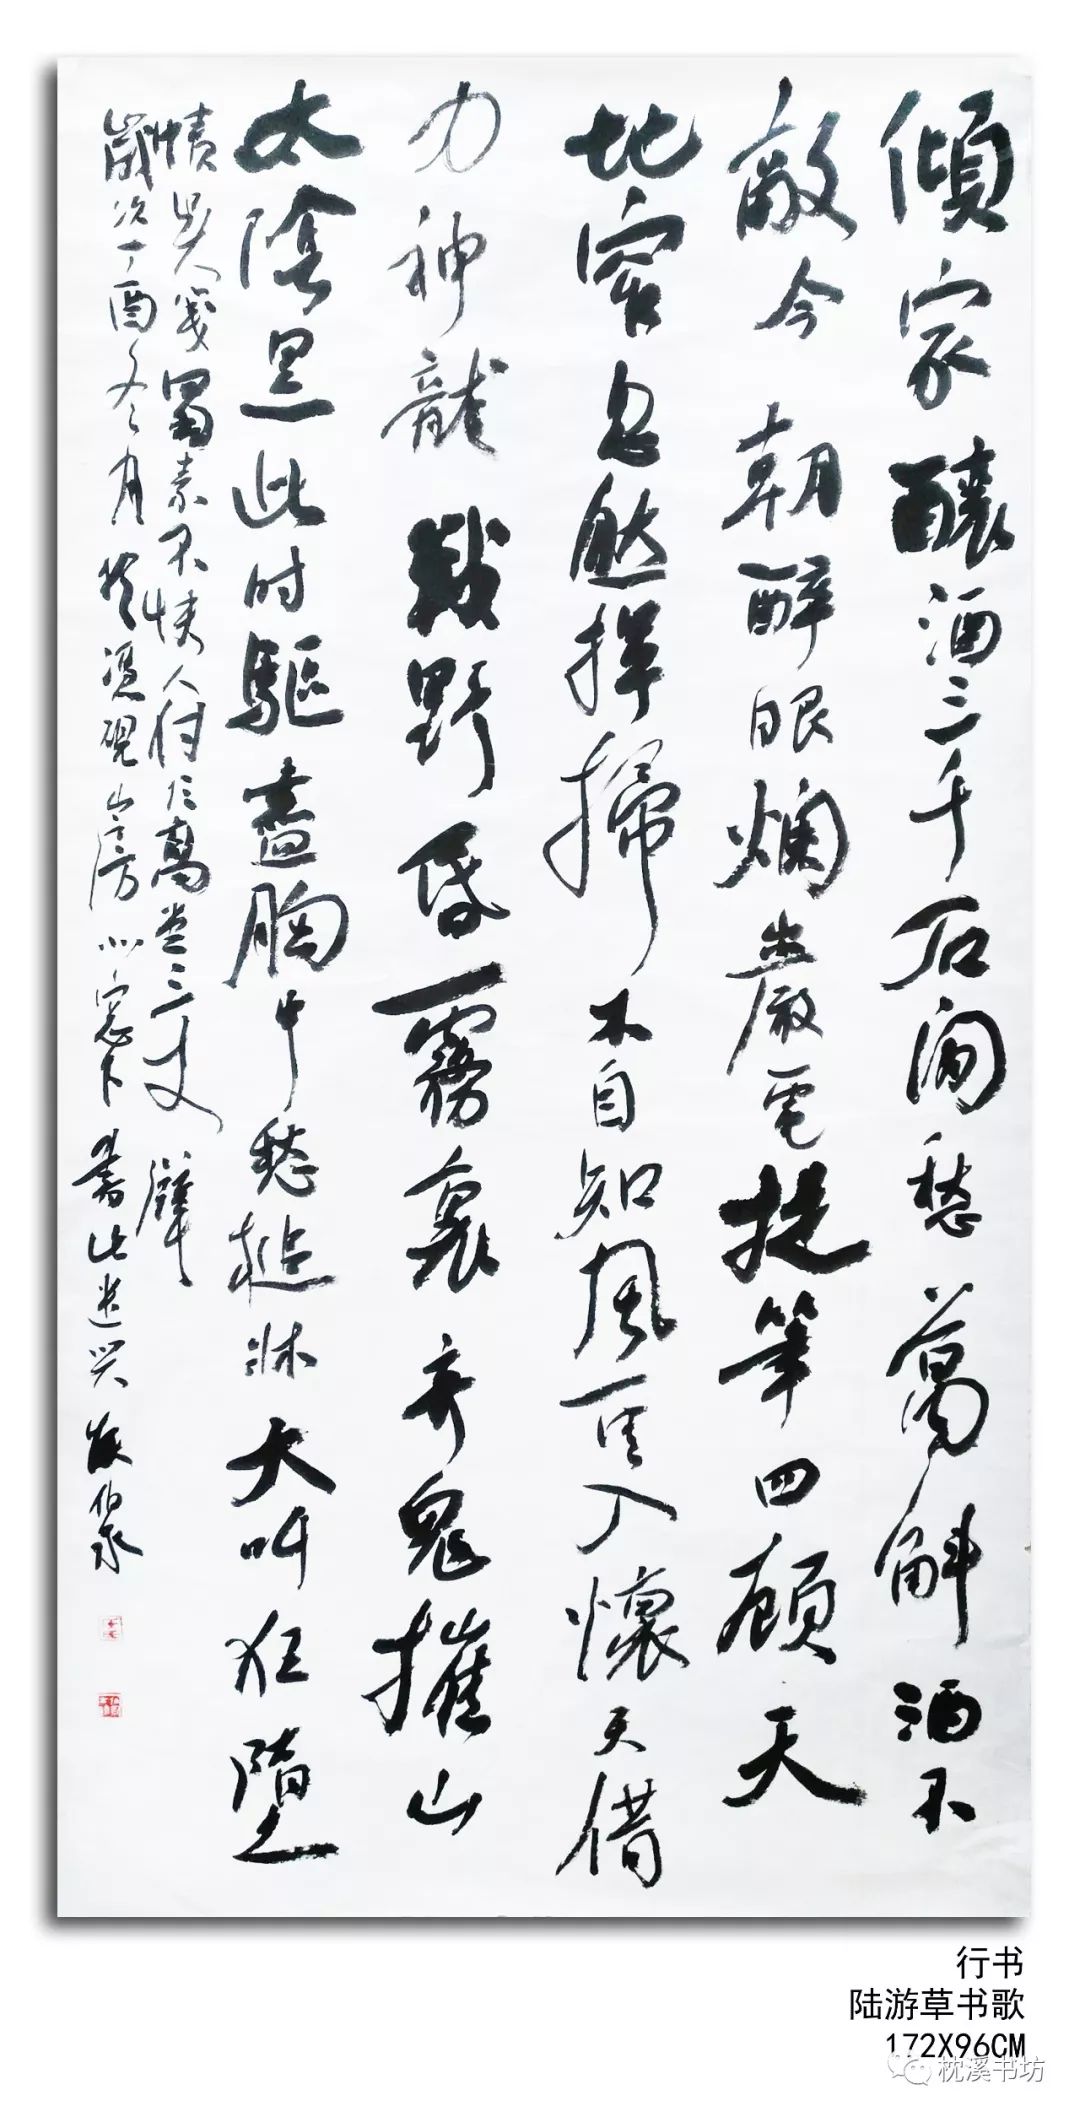 傾家釀酒三千石閒愁萬斛酒不
敵今朝醉眼爛巖電捉筆四顧天
地窄忽然揮掃不自知風雲入懷天借
力神龍戰野昏霧裏奇鬼摧山
太陰黑此时驅盡胸中愁槌牀大叫狂墮
幘吳箋蜀素不快人付与高堂三丈壁
歲次丁酉冬月於硯山房北窗下書此遣興
行书
陆游草书歌
172X96CM
枕溪书坊